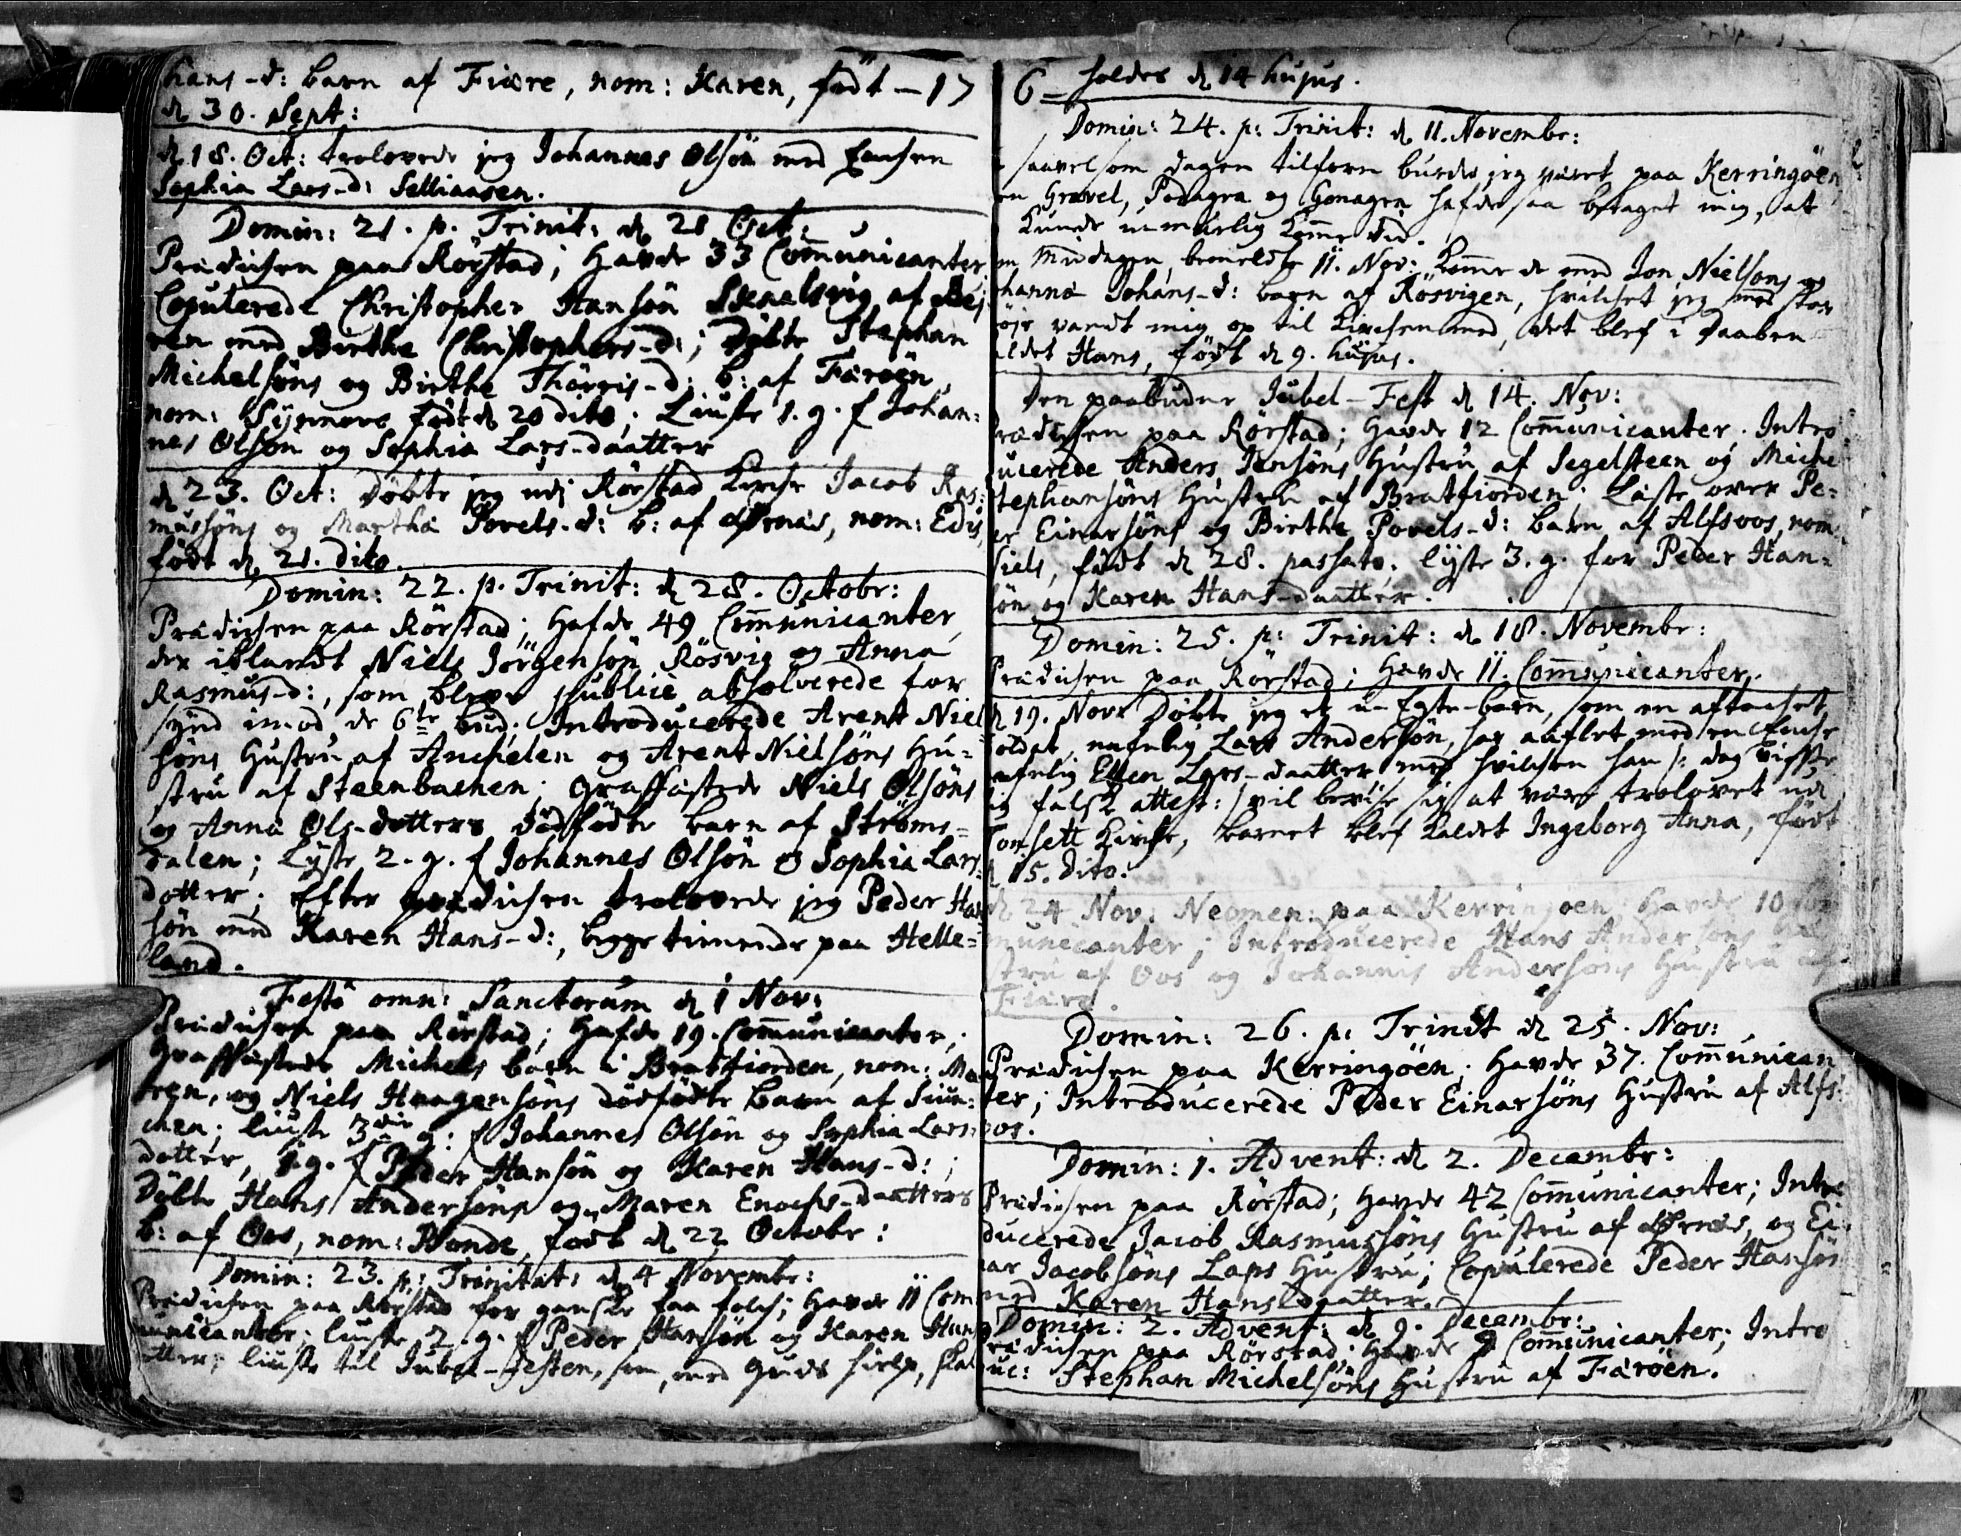 hans-d: barn af Fiære, nom: Karen, födt – 17
d 30. Sept:
d 18. Oct: trolovede jeg Johannes Olsön med Enchen
Sophia Lars-d: Selliaasen.
Domin: 21. p. Trinit: d 21 Oct:
Prædichen paa Rörstad; Havde 33 Com̄unicanter
Copulerede Christopher Hansön Skaalsvig af Bej
ren med Birthe Christophers-d:; Döbte Stephan
Michelsöns og Birthe Thörris-d: b: af Færöen,
nom: Synnove födt d 20 dito; Liuste 1. g. f Johan:
nes Olsön og Sophia Lars-daatter
d 23. Oct: Döbte jeg udj Rörstad Kirche Jacob Ras:
mussöns og Martha Povels-d: b: af Ørnæs, nom: Edis,
födt d 21. dito.
Domin: 22. p. Trinit: d 28. Octobr:
Prædichen paa Rörstad; Hafde 49 Com̄unicanter,
der iblandt Niels Jörgensön Rösvig og Anna
Rasmus-d:, som bleve publicè absolverede for
synd imod de 6te bud; Introducerede Arent Niel
söns Hustru af Anchelen og Arent Nielsöns Hu=
stru af Steenbachen; Graffæstede Niels Olsöns
og Anna Ols-dotters dödfödte barn af Ströms=
dalen; Lyste 2. g. f Johannes Olsön & Sophia Lars:
dotter; Efter prædichen trolovede jeg Peder Han
sön med Karen Hans-d:, begge tienende paa Helle=
land.
Festô omn: Sanctorum d 1 Nov:
Prædichen paa Rörstad; Hafde 19. Com̄unicanter;
Graffæstede Michels barn i Bratfiorden, nom: Ma
ren, og Niels Haagensöns dödfödte barn af Siun-
chen; liuste 3die g: f Johannes Olsön og Sophia Lars:
dotter, 1. g. f Peder Hansön og Karen Hans-d:;
Döbte Hans Andersöns og Maren Enochs-daatters
b: af Oos, nom: Bonde, födt d 22 Octobr:
Domin: 23. p: Trinitat: d 4 Novembr:
Prædichen paa Rörstad for ganske faa folch; Havde 11 Com̄
unicanter; liuste 2. g. f Peder Hansön og Karen Hans
dtter; liuste til Jubel-Festen, som, med Guds hielp, skal
6 – holdes d 14 hujus.
Domin: 24. p: Trinit: d 11. Novembr:
saavelsom dagen tilforn burde jeg været paa Kerringöen,
en Gravel, Podagra og Gonagra hafde saa betaget mig, at
Kunde u-muelig kom̄e did.
Middagen bemeldte 11. Nov: kom̄e de med Jon Nielsöns og
hanna Johans-d: barn af Rösvigen, hvilchet jeg med stor
möje vandt mig op til Kirchen med, det blef i Daaben
aldet Hans, födt d 9. hujus.
Den paabudne Jubel-Fest d 14. Nov:
Prædichen paa Rörstad; Havde 12 Com̄unicanter. Intro
ucerede Anders Jensöns Hustru af Segelsteen og Miche
Stephansöns Hustru af Bratfiorden; Læste over Pe=
er Einarsöns og Birthe Povels-d: barn af Alfsoos, nom:
Niels, födt d 28. passato; lyste 3. g. for Peder Han=
sön og Karen Hans-daatter.
Domin: 25. p: Trinit: d 18. Novembr:
Prædichen paa Rörstad; Havde 11. Com̄unicanter.
d 19. Nov: Döbte jeg et u-Egte-barn, som en aftachet
Soldat, nafnlig Lars Andersön, har aaflet med en Enche
nafnlig Ellen Lars-daatter, med hvilchen han /: dog visste
falsk attest: / vil bevise sig at være trolovet udj
Tonsett Kirche, barnet blef kaldet Ingeborg Anna, födt
d 15. dito.
d 24 Nov: Neomen: paa Kerringöen havde 10 Com̄
municanter; Introducerede Hans Andersöns Hu
stru af Oos og Johannis Andersöns Hustru af
Fiære.
Domin: 26. p: Trinit d 25. Nov:
Prædichen paa Kerringöen; Havde 37. Com̄unican
ter; Introducerede Peder Einarsöns Hustru af Alfs:
oos.
Domin: 1. Advent: d 2. Decembr:
Prædichen paa Rörstad; Havde 42 Com̄unicanter; Intro
ducerede Jacob Rasmussöns Hustru af Ørnæs, og Ei-
nar Jacobsöns Laps Hustru; Copulerede Peder Hansön
med Karen Hansdaatter.
Domin: 2. Advent: d 9. Decembr:
Prædichen paa Rörstad; Havde 9 Com̄unicanter; Intro
duc: Stephan Michelsöns Hustru af Færöen.